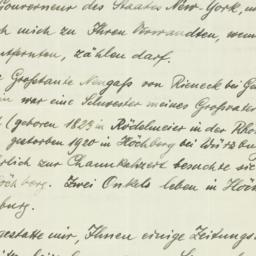 Gouverneur des Staates New-York, un
ch mich zu Ihren Verwandten, wenn
ntfernten, zählen darf.
Großtante Neugaß von Rieneck bei Ge
war eine Schwester meines Großvater
(geboren 1823 in Rödelmeier in der Rhö
gestorben 1920 in Höchberg bei Würzbu
rlich zur Channkehzeit besuchte sie
öchberg. Zwei Onkels leben in Höch
burg.
gestatte mir, Ihnen einige Zeitungs